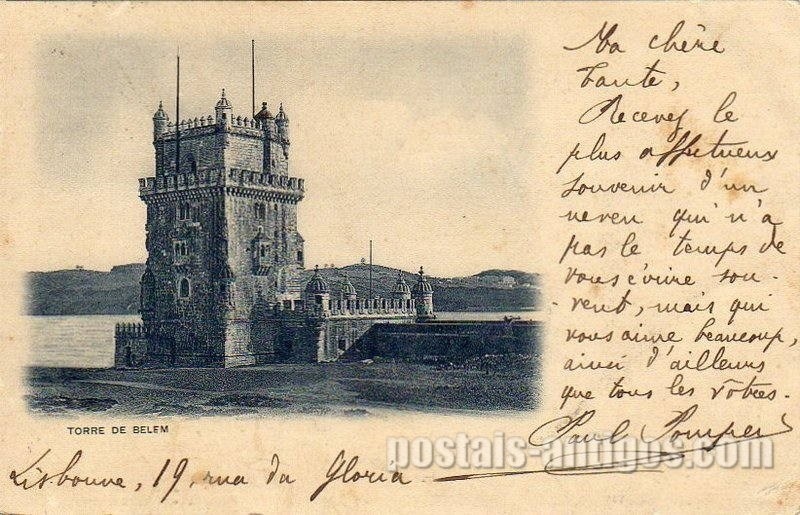 Ma chère
tante,
Recevez le
plus affectueux
souvenir d'un
neveu qui n'a
pas le temps de
vous écrire sou-
vent, mais qui
vous aime beaucoup,
ainsi d'ailleurs
que tous les vôtres.
Paul
TORRE DE BELEM
postais-antigos.com
Lisbonne, 19, rua da Gloria